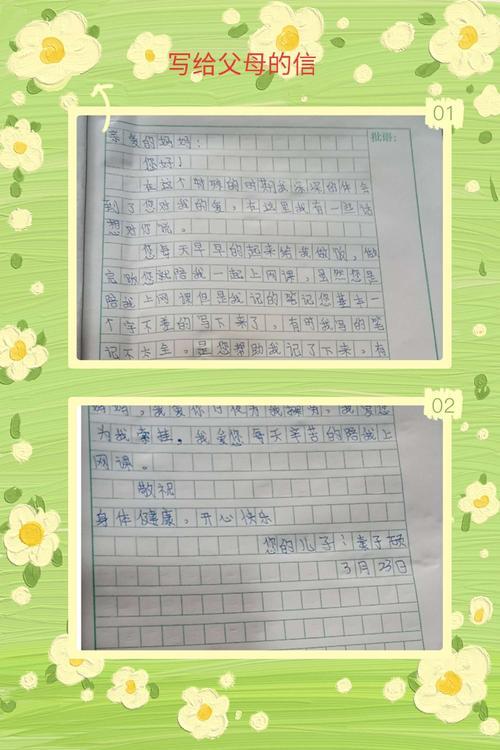 写给父母的信
01
批语:
亲爱的妈妈:
您好!
在这个特殊的时期我深深的体会
到了您对我的爱,在这里我有一些话
想对你说。
您每天早早的起来给我做饭,做
完饭您就陪我一起上网课,虽然您是
陪我上网课但是我记的笔记您基本一
个字不差的写下来了,有时我写的笔
记不太全,是您帮助我记了下来,有
02
妈妈,我爱你
为我牵挂。我爱您每天辛苦的陪我上
网课。
敬祝
身体健康,开心快乐
您的儿子:
3月23日